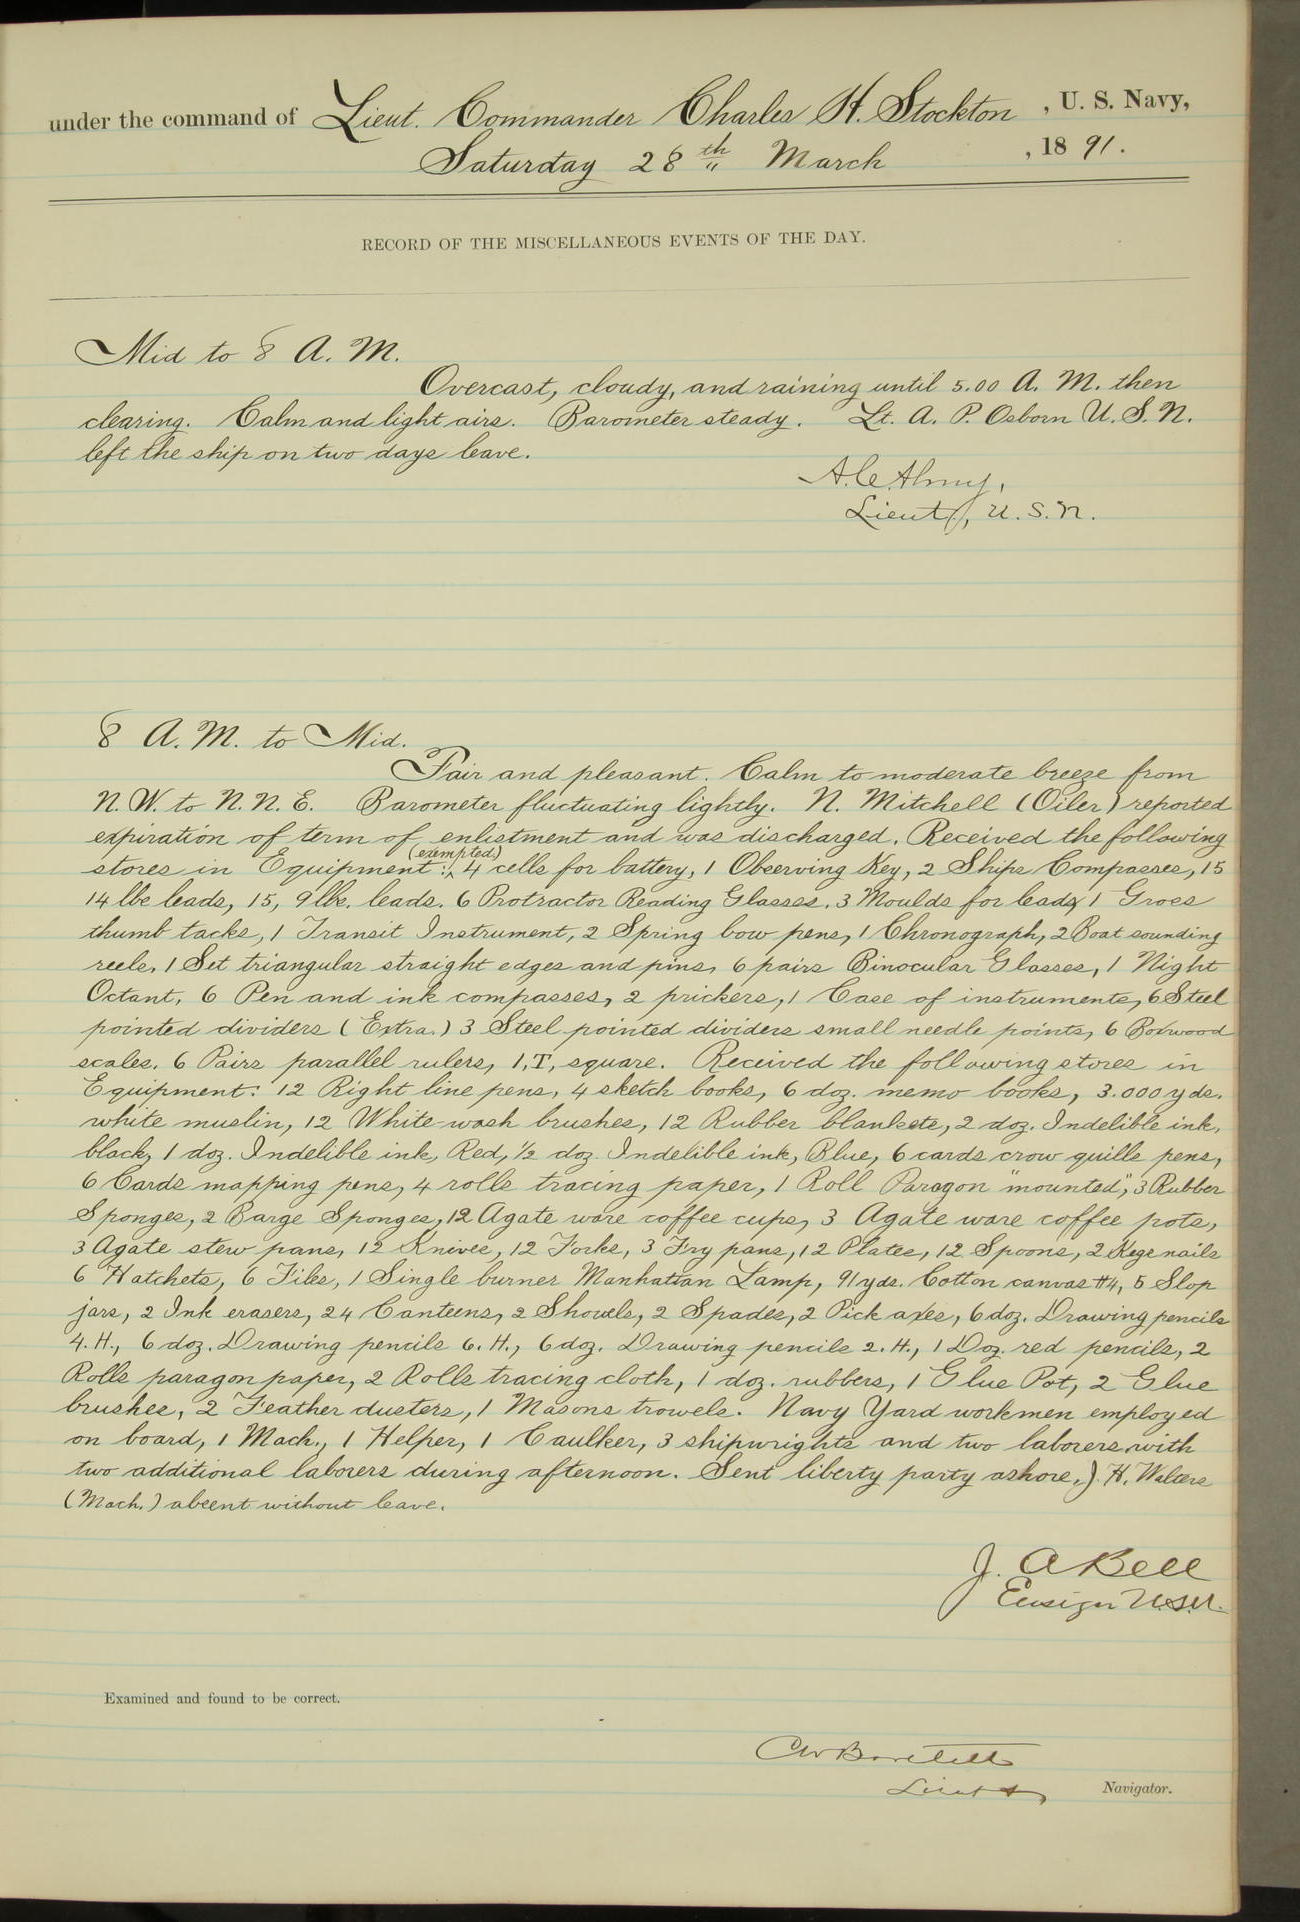 under the command of Lieut. Commander Charles H. Stockton , U. S. Navy,
Saturday 28th March , 1891.
RECORD OF THE MISCELLANEOUS EVENTS OF THE DAY.
Mid to 8 A. M.
Overcast, cloudy, and raining until 5.00 A. M. then
clearing. Calm and light airs. Barometer steady. Lt. A. P. Osborn U. S. N.
left the ship on two days leave.
A. C. Almy,
Lieut., U. S. N.
8 A. M. to Mid.
Fair and pleasant. Calm to moderate breeze from
N. W. to N. N. E. Barometer fluctuating lightly. N. Mitchell (Oiler) reported
expiration of term of enlistment and was discharged. Received the following
stores in Equipment: (exempted) 4 cells for battery, 1 Observing Key, 2 Ships Compasses, 15
14 lbs leads, 15, 9 lbs. leads. 6 Protractor Reading Glasses. 3 Moulds for leads, 1 Gross
thumb tacks, 1 Transit Instrument, 2 Spring bow pens, 1 Chronograph, 2 Boat sounding
reels, 1 Set triangular straight edges and pins, 6 pairs Binocular Glasses, 1 Night
Octant, 6 Pen and ink compasses, 2 prickers, 1 Case of instruments, 6 Steel
pointed dividers (Extra.) 3 Steel pointed dividers small needle points, 6 Boxwood
scales. 6 Pairs parallel rulers, 1, T, square. Received the following stores in
Equipment: 12 Right line pens, 4 sketch books, 6 doz. memo books, 3.000 yds.
white muslin, 12 White-wash brushes, 12 Rubber blankets, 2 doz. Indelible ink,
black, 1 doz. Indelible ink, Red, 1/2 doz Indelible ink, Blue, 6 cards crow quills pens,
6 Cards mapping pens, 4 rolls tracing paper, 1 Roll Paragon "mounted", 3 Rubber
Sponges, 2 Barge Sponges, 12 Agate ware coffee cups, 3 Agate ware coffee pots,
3 Agate stew pans, 12 Knives, 12 Forks, 3 Fry pans, 12 Plates, 12 Spoons, 2 Kegs nails
6 Hatchets, 6 Files, 1 Single burner Manhattan Lamp, 91 yds. Cotton canvas #4, 5 Slop
jars, 2 Ink erasers, 24 Canteens, 2 Shovels, 2 Spades, 2 Pick axes, 6 doz. Drawing pencils
4. H., 6 doz. Drawing pencils 6. H., 6 doz. Drawing pencils 2. H., 1 Doz. red pencils, 2
Rolls paragon paper, 2 Rolls tracing cloth, 1 doz. rubbers, 1 Glue Pot, 2 Glue
brushes, 2 Feather dusters, 1 Masons trowels. Navy Yard workmen employed
on board, 1 Mach., 1 Helper, 1 Caulker, 3 shipwrights and two laborers with
two additional laborers during afternoon. Sent liberty party ashore. J. H. Walters
(Mach.) absent without leave.
J. A Bell
Ensign U.S.N.
Examined and found to be correct.
CW Bartlett
Lieut Navigator.